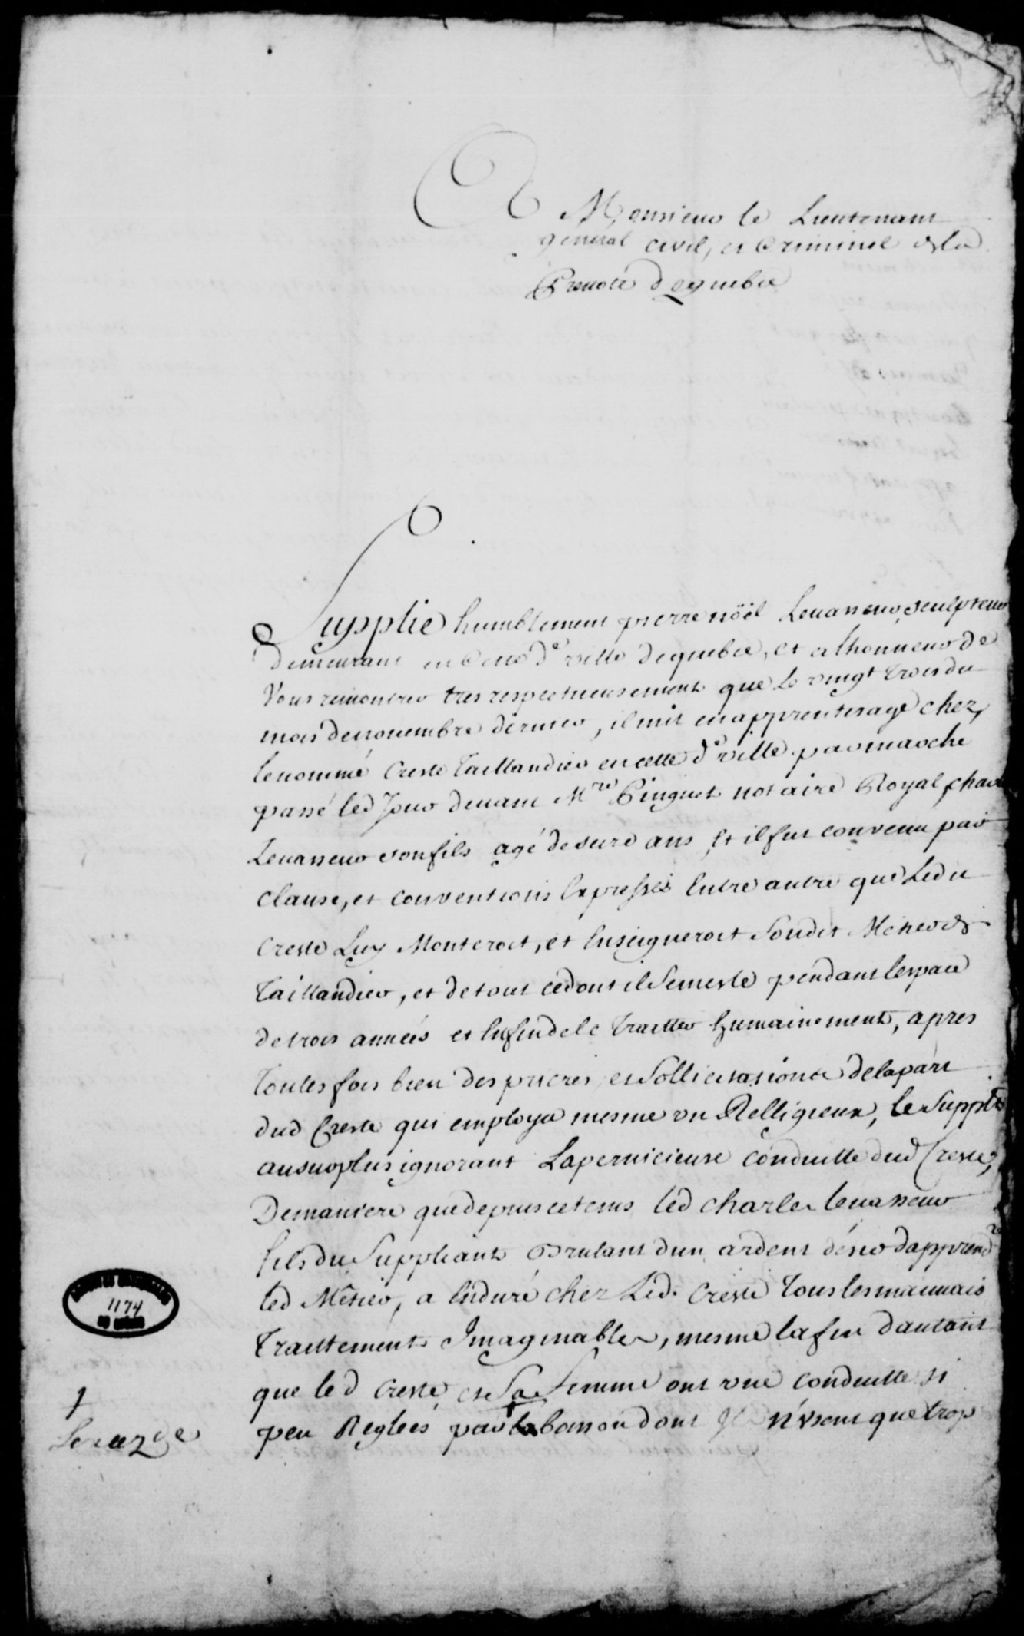 A Monsieur le Lieutenant
general civil, et Criminel de la
Prevoté de quebec
Supplie humblement pierre noël Levasseur, sculpteur
demeurant en cette de ville de quebec, et a lhonneur de
Vous remontrer tres respectueusement que le vingt trois du
mois de novembre dernier, il mit en apprentisage chez
le nommé Creste Taillandier en cette de ville par marché
passé led Jour devant Mre Pinguet notaire Royal, Charles
Levasseur son fils agé de seize ans, et il fut convenu par
clause, et conventions Expresses Entre autre que Ledit
Creste Luy Monteroit, et Enseigneroit Soudit Métier de
Taillandier, et de tout ce dont il Se mesle pendant lespace
de trois années et Enfin de le Traitter humainement, apres
Toutes fois bien des prieres et Sollicitations de la part
dud Creste qui employa mesme un Relligieux, le Suppt
au surplus ignorant La pernicieuse conduitte dud Creste,
De maniere que depuis ce tems led charles levasseur
fils du Suppliant brulant dun ardent désir dapprendre
led Métier, a Enduré chez Led. Creste Tous les mauvais
Traittements Imaginables, mesme la fin dautant
que led Creste et Sa femme ont une conduitte si
peu Reglées par la boisson dont Ils n'usent que trop
1174